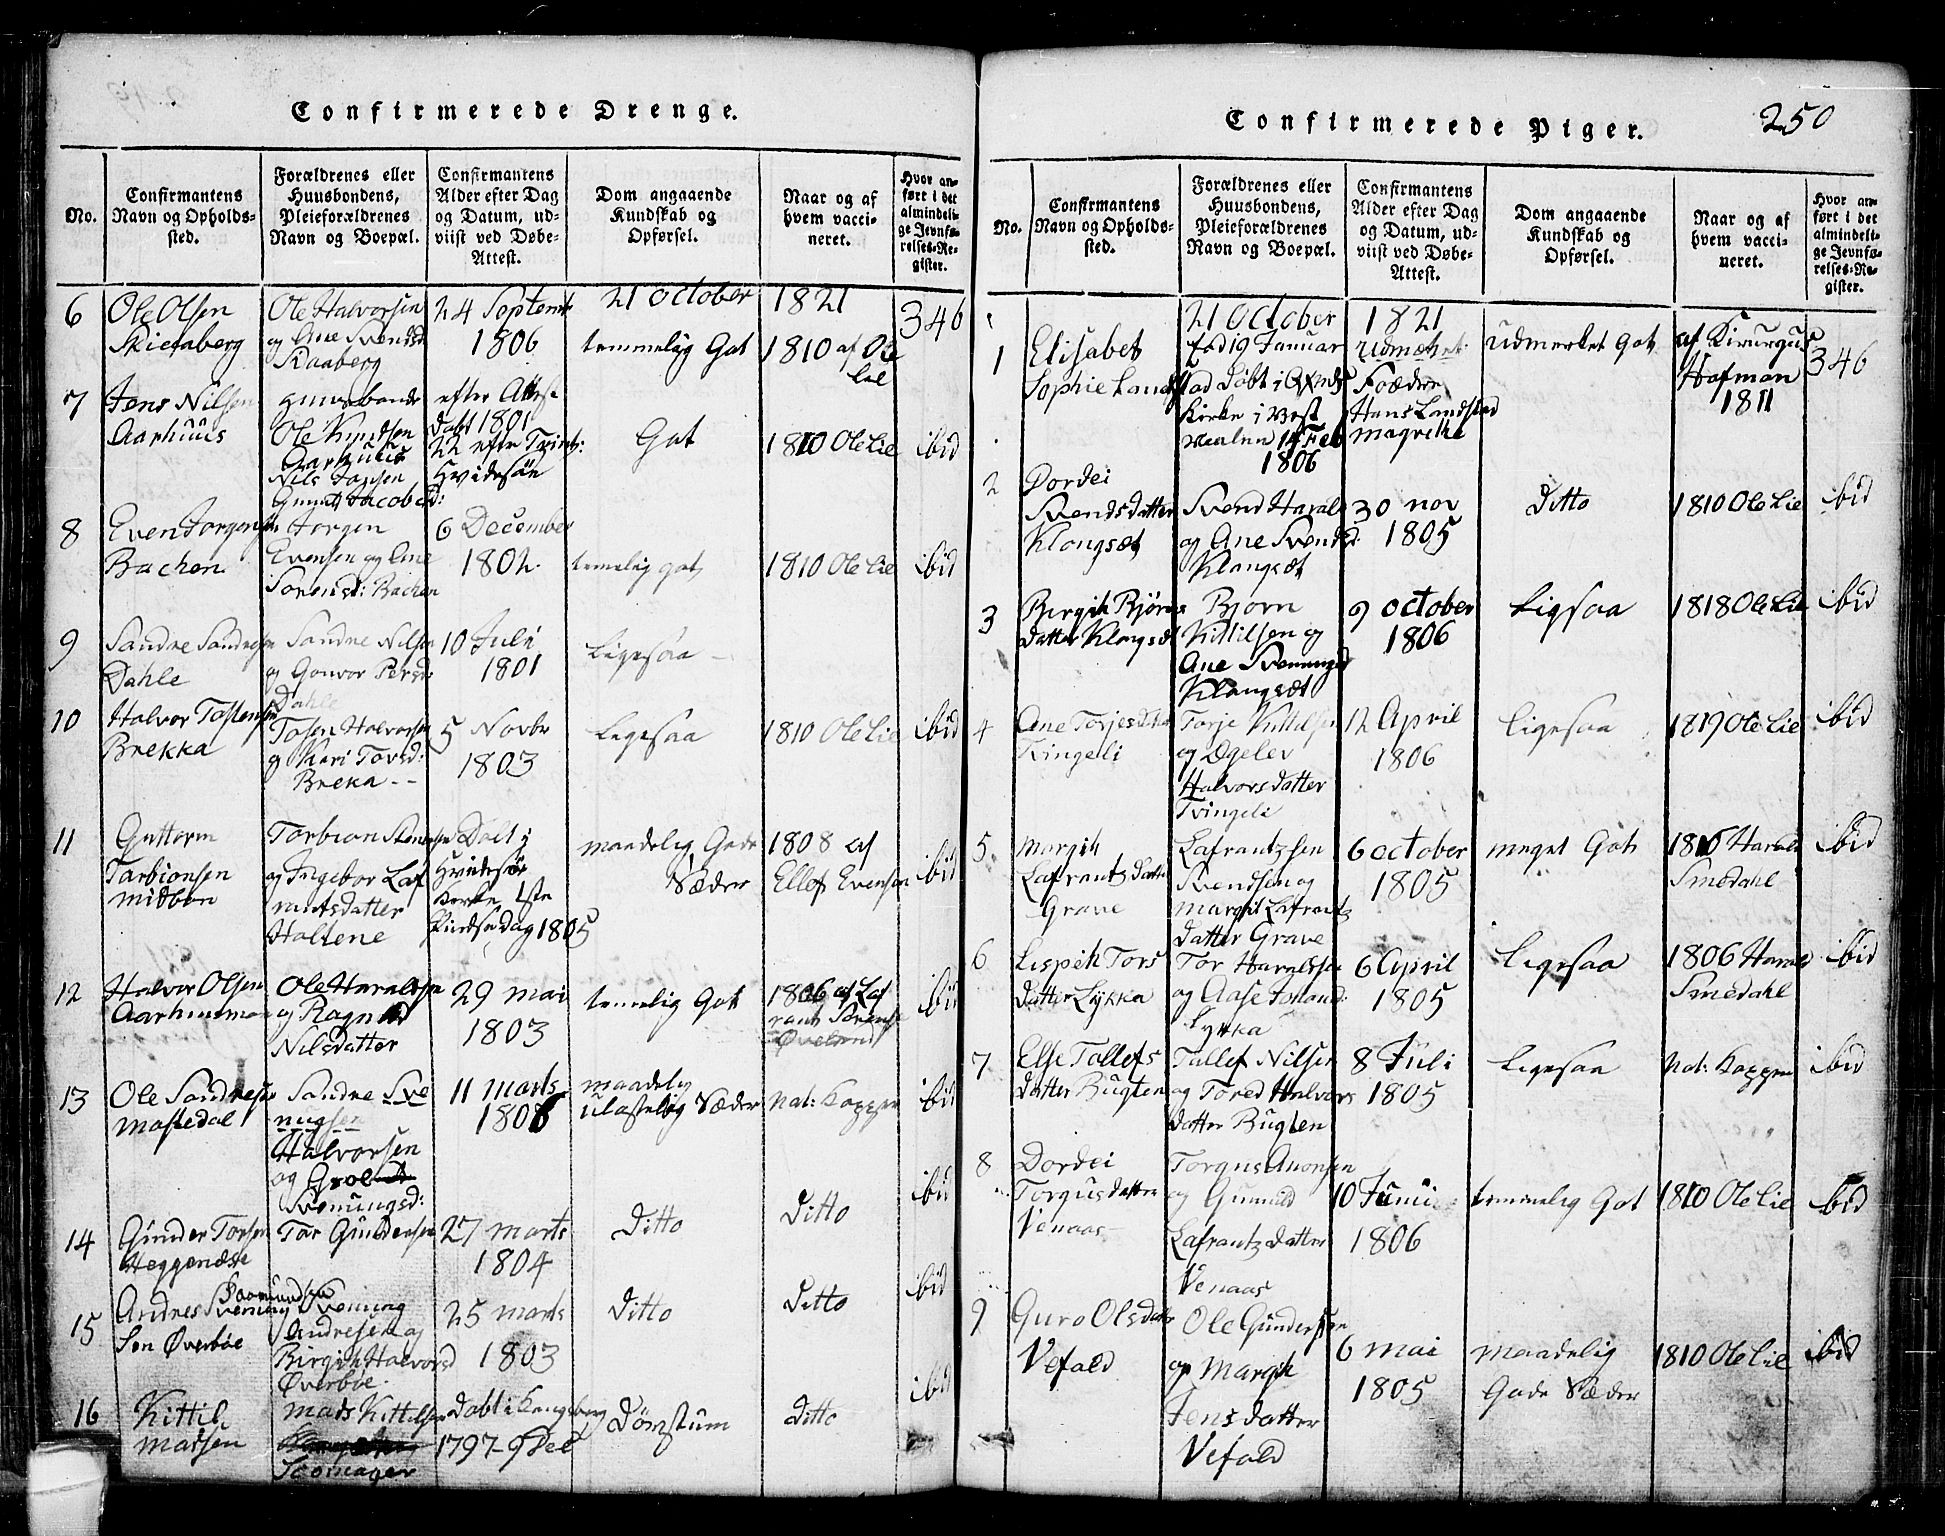 Confirmerede Drenge.
No.
Confirmantens Navn og Opholds-sted.
Forældrenes eller Huusbondens, Pleieforældrenes Navn og Boepæl.
Confirmantens Alder efter Dag og Datum, ud-viist ved Døbe-Attest.
Dom angaaende Kundskab og Opførsel.
Naar og af hvem vacci-neret.
Hvor an-ført i det almindeli-ge Jevnfø-relses-Re-gister.
21 October 1821
6
Ole Olsen
Skieaberg
Ole Halvorsen
og Ane Svendsd
Skaaberg
24 Septemb
1806
temmelig Got
1810 af Ole
Lie
346
7
Jens Nilsen
Aarhuus
Huusbonde
Ole Knudsen
Aarhuus
Nils Jansen
Gunnil Jacobsd:
efter Attest
Døbt 1801
22 efter Trinit:
Hvidesøe
Got
1810 Ole Lie
ibid
8
Even Jorgensen
Bachen
Jorgen
Evensen og Ane
Sorensd: Bachen
6 December
1802.
temelig got
1810 Ole Lie
ibid
9
Sandre Sandresen
Dahle
Sandre Nilsen
og Gonvor Persd:
Dahle
10 Juli
1801
Ligesaa –
10
Halvor Tostensen
Brekka
Tosten Halvorsen
og Kari Torsd:
Breka --
5 Novbr
1803
Ligesaa
1810 Ole Lie
ibid
11
Guttorm
Tarbionsen
midbøn
Torbion
og Ingebor Laf
rantsdatter
Haltene
Døbt i
Hvidesøe
Kirke 1ste
Pindsedag 1805
maadelig Gode
Sæder
1808 af
Ellef Evensen
ibid
12
Halvor Olsen
Aarhusmoe
Ole Haraldsen
og Ragnild
Nilsdatter
29 mai
1803
temelig Got
1806 af Laf
rants Sørense
ibid
13
Ole Sandresen
mostedal
Sandre Sve
nugsen
Halvorsen
og
Svenungsd:
11 marts
1806
maadelig
ulastelig Sæder
Nat: Kopper
ibid
14
Gunder Torsen
Heggendse
Tor Gundersen
27 marts
1804
Ditto
Ditto
ibid
15
Andres Svenung
Sen Øverbøe
Svenung
Andresen og
Birgith Halvorsd
Øverbøe.
25 marts
1803
Ditto
Ditto
ibid
16
Kittil
Madsen
Mads Kittelsen
Skomager
Døbt i Kongsberg
1797-9 Dec
Ditto
ibid
Confirmerede Piger.
250
No.
Confirmantens Navn og Opholds-sted.
Forældrenes eller Huusbondens, Pleieforældrenes Navn og Boepæl.
Confirmantens Alder efter Dag og Datum, ud-viist ved Døbe-Attest.
Dom angaaende Kundskab og Opførsel.
Naar og af hvem vacci-neret.
Hvor an-ført i det almindeli-ge Jevnfø-relses-Re-gister.
21 October 1821
1
Elisabet
Sophie Landstad
Fød 19 Januar
Døbt i
Kirke i Vest
14 Feb
1806
Foædre
Hans Landstad
Magrethe
udmerket Got
af Kirurgus
Hofman
1811
346
2
Dordei
Svendsdatter
Klongsæt
Svend Haral
og Ane Svendsd:
Klangsæt
30 nov
1805
Ditto
1810 Ole Lie
ibid
3
Birgith Bjørns
datter Klongsæt
Bjorn
Kittilsen og
Ane Svenungsd
Klangsæt
9 october
1806
Ligsaa
1818 Ole Lie
ibid
4
Ane Torjesdatter
Tvingeli
Torje Kittilsen
og Egelev
Halvorsdatter
Tvingeli
12 April
1806
Ligesaa
1819 Ole Lie
ibid
5
Margit
Lafrantzdatter
Grave
Lafrantzsen
Svendsen og
Margit Lafrantz
datter Grave
6 october
1805
meget Got
1806 Harald
Smedahl
ibid
6
Lispeth Tors
datter Lykka
Tor Haraldsen
og Aase Johansd:
Lykka
6 April
1805
Ligesaa
1806 Harald
Smedahl
ibid
7
Else Tollefs
datter Bugten
Tallef Nilsen
og Tored Halvors
datter Bugten
8 Juli
1805
Ligesaa
Nat: Kopper
ibid
8
Dordei
Torgusdatter
Venaas
Torgus Anonsen
og Gunnild
Lafrantzdatter
Venaas
10 Junii
1806
temmelig Got
1810 Ole Lie
ibid
9
Guro Olsdatter
Vefald
Ole Gundersen
og Margith
Jensdatter
Vefald
6 mai
1805
maadelig
Gode Sæder
1810 Ole Lie
ibid